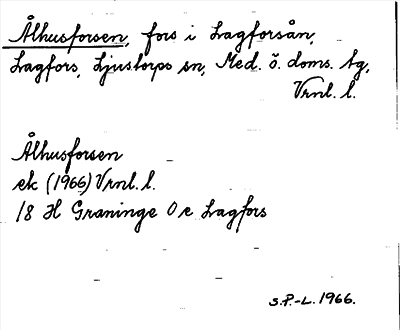 Ålhusforsen, fors i Lagforsån,
Lagfors, Ljustorps sn, Med. ö. doms. tg,
Vrnl. l.
Ålhusforsen
ek (1966) Vrnl. l.
18 H Graninge 0 c Lagfors
S.P.-L. 1966.